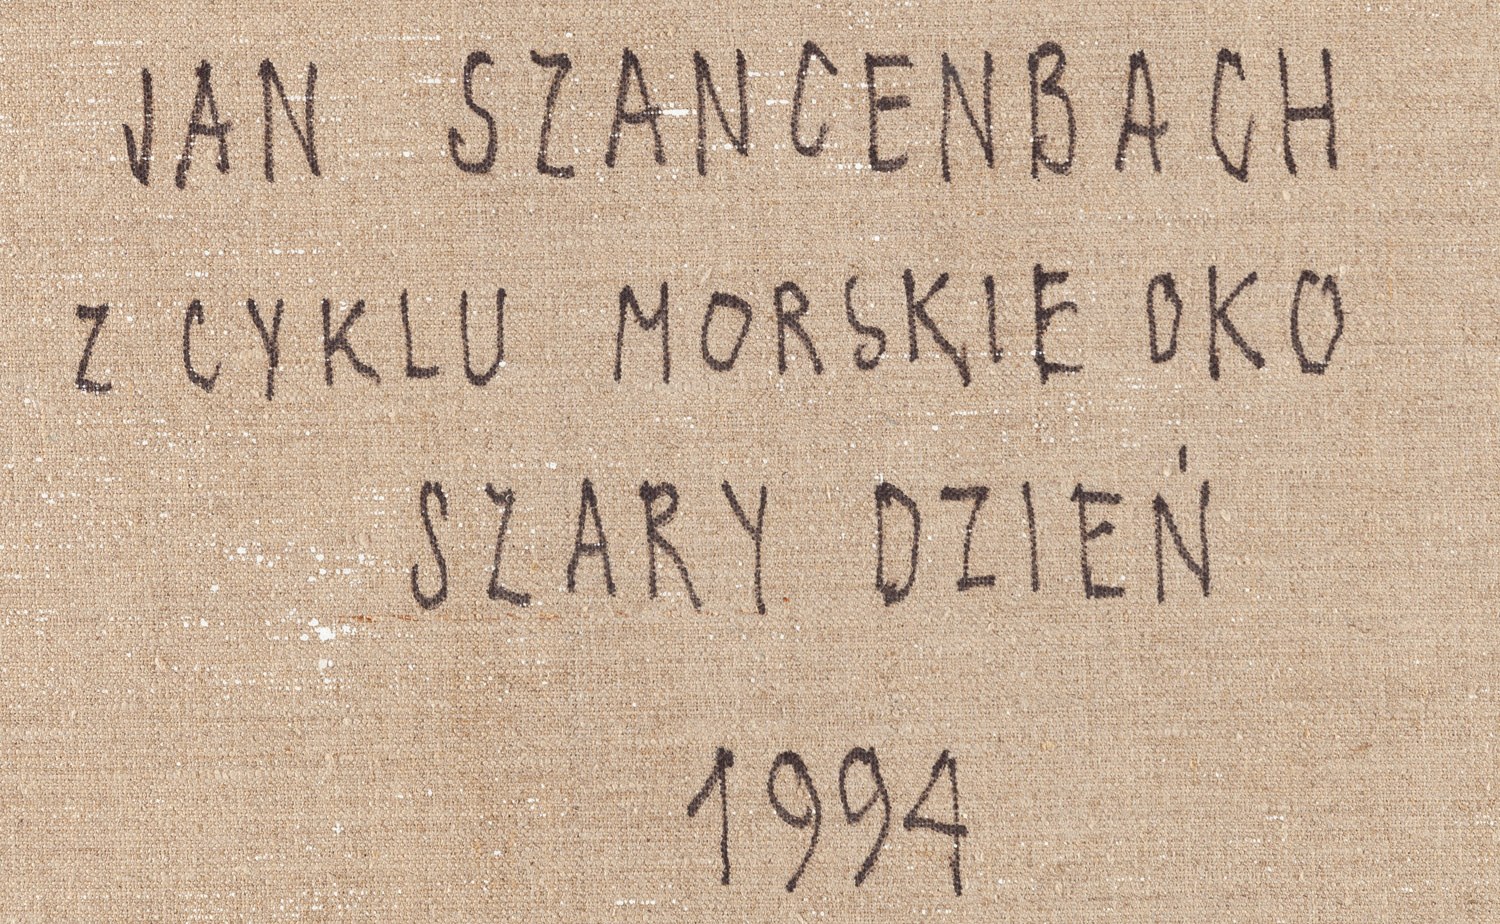 JAN SZANCENBACH
Z CYKLU MORSKIE OKO
SZARY DZIEŃ
1994